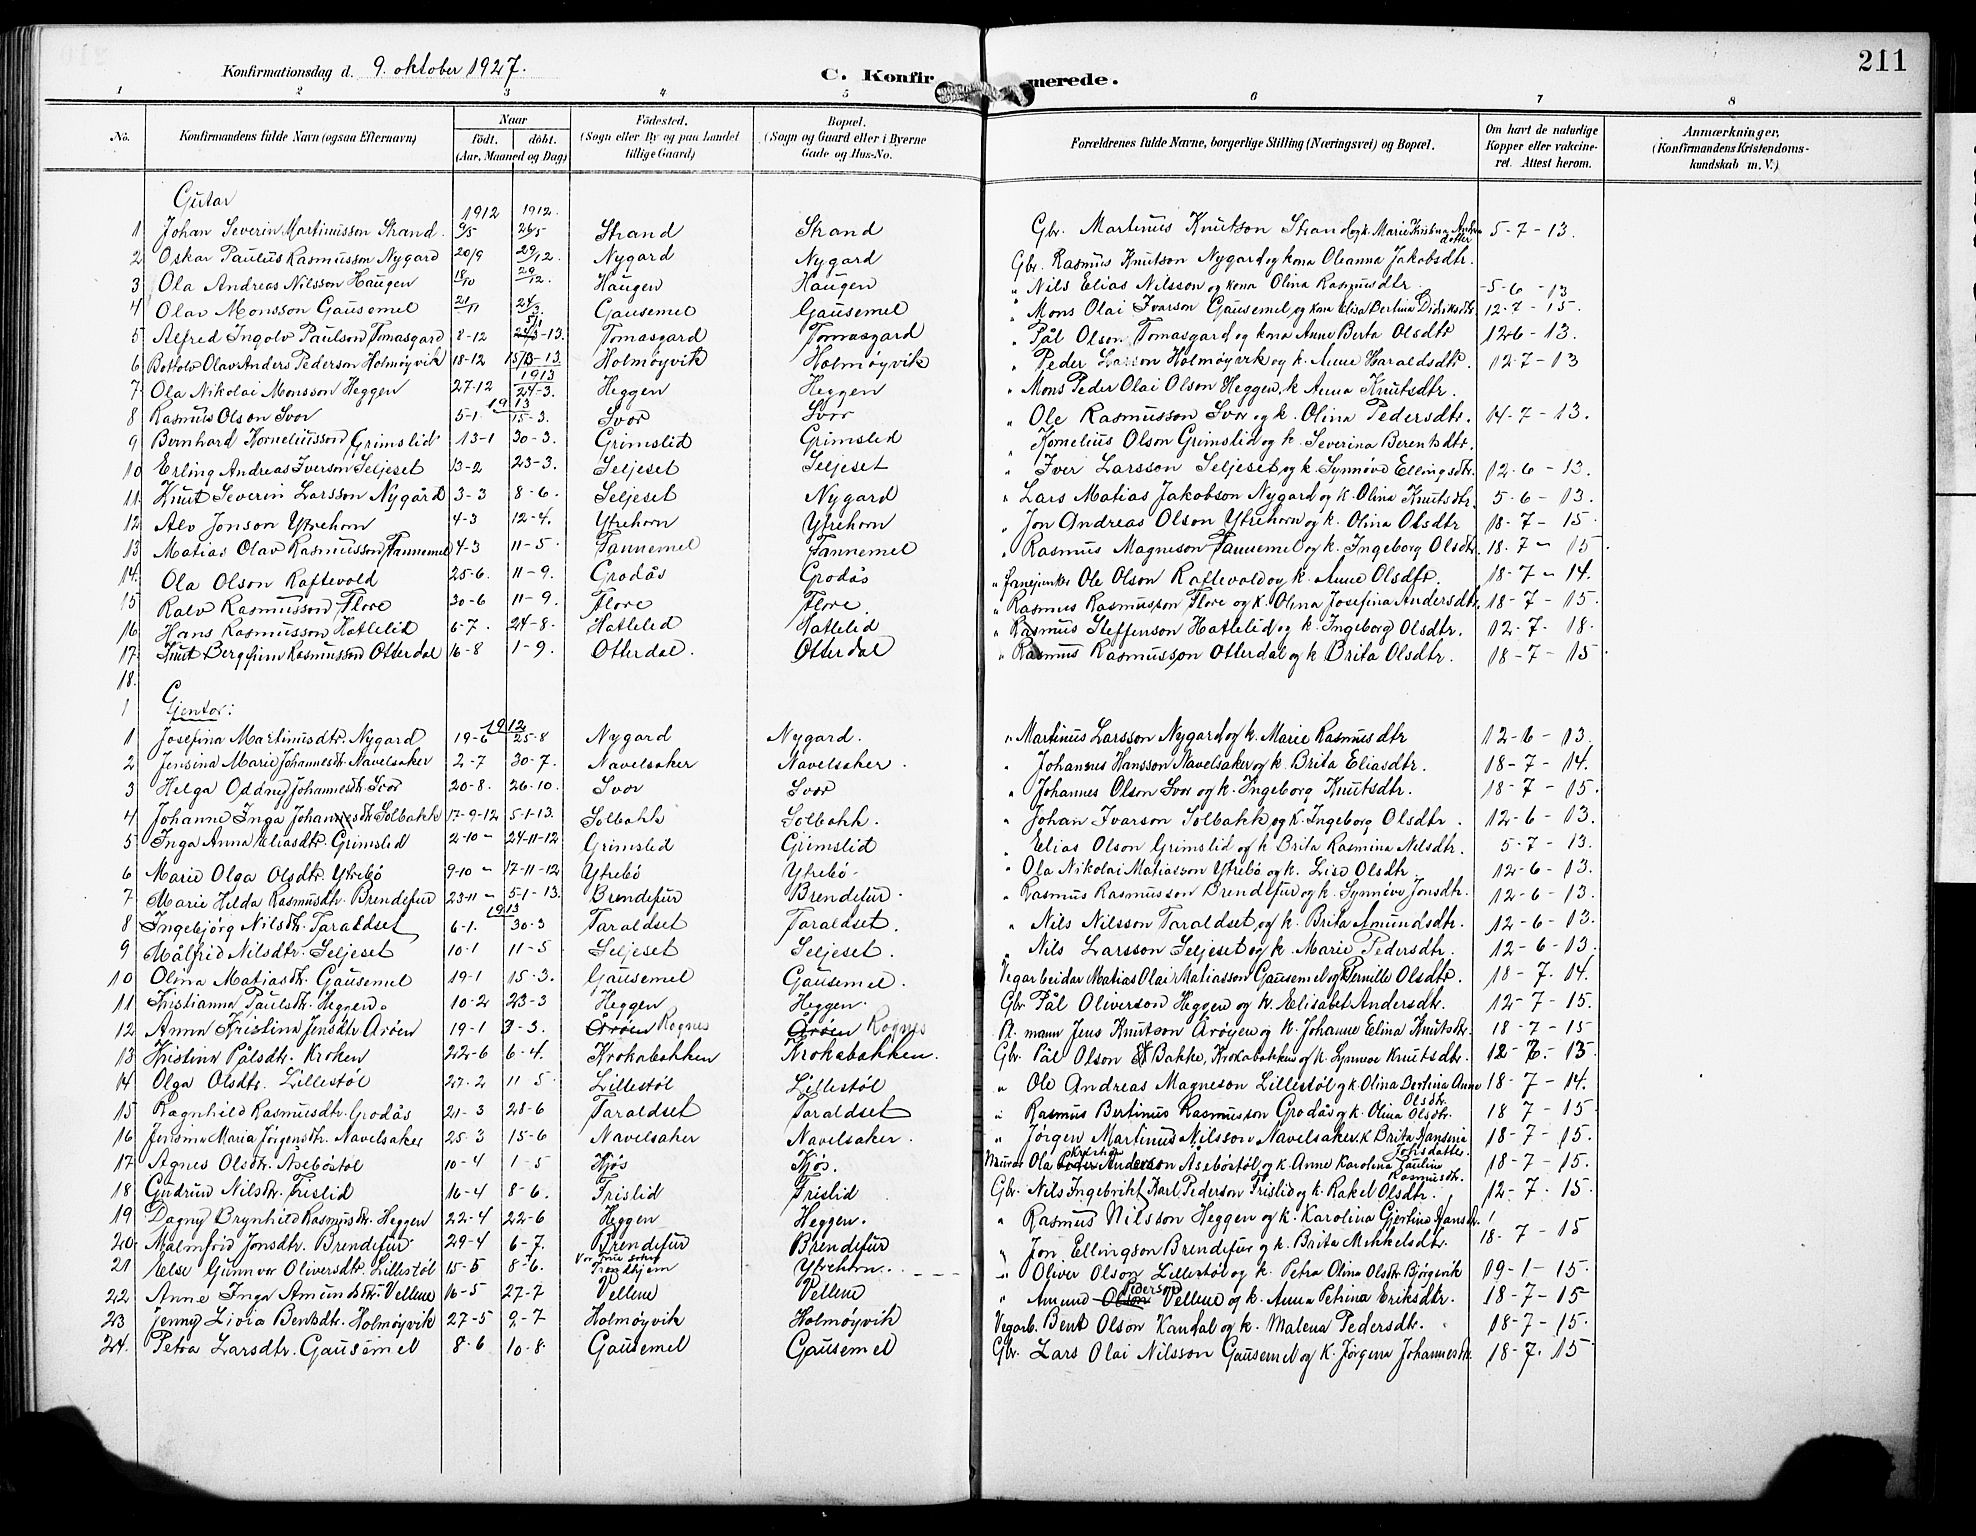 211
Konfirmationsdag d. 9. oktober 1927.
C. Konfirmerede.
1 2 3 4 5 6 7 8
No. Konfirmandens fulde Navn (ogsaa Efternavn) Naar født. døbt. (Aar, Maaned og Dag) Fødested. (Sogn eller By og paa Landet tillige Gaard) Bopæl. (Sogn og Gaard eller i Byerne Gade og Hus-No. Forældrenes fulde Navne, borgerlige Stilling (Næringsvei) og Bopæl. Om havt de naturlige Kopper eller vakcineret. Attest herom. Anmærkninger, (Konfirmandens Kristendomskundskab m. V.)
Gutar
1912 1912.
1 Johan Severin Martinusson Strand. 6/5 26/5 Strand Strand Gbr. Martinus Knutson Strand og k. Marie Kristina Andersdatter 5-7-13.
2 Oskar Paulus Rasmusson Nygard 20/9 29/12. Nygard Nygard Gbr. Rasmus Knutson Nygard og kona Oleanna Jakobsdtr.
3 Ola Andreas Nilsson Haugen 18/10 29/12. Haugen Haugen " Nils Elias Nilsson og kona Olina Rasmusdtr -5-6-13
4 Olav Monsson Gausemel 21/11 24/3. Gausemel Gausemel " Mons Olai Ivarson Gausemel og kona Elisa Bertina Didriksdtr 12-7-15.
5 Alfred Ingolv Paulson Tomasgard 8-12 5/1-13. Tomasgard Tomasgard " Pål Olson Tomasgard og kona Anne Berta Olsdtr 12-6-13.
6 Bottolv Olav Anders Pederson Holmøyvik 18-12 15/3-13 Holmøyvik Holmøyvik " Peder Larson Holmøyvik og k. Anne Haraldsdtr. 12-7-13
1913
7 Ola Nikolai Monsson Heggen 27-12 24-3. Heggen Heggen " Mons Peder Olai Olson Heggen, k Anna Knutsdtr.
1913
8 Rasmus Olson Svor 5-1 15-3. Svor Svor " Ole Rasmusson Svor og k. Olina Pedersdtr. 14-7-13.
9 Bernhard Korneliusson Grimslid 13-1 30-3. Grimslid Grimslid " Kornelius Olson Grimslid og k. Severina Berentsdtr.
10 Erling Andreas Iverson Seljeset 13-2 23-3. Seljeset Seljeset " Iver Larsson Seljeset og k. Synnøve Ellingsdtr. 12-6-13.
11 Knut Severin Larsson Nygård 3-3 8-6. Seljeset Nygard " Lars Matias Jakobson Nygard og k. Olina Knutsdtr. 5-6-13.
12 Alv Jonson Ytrehorn 4-3 12-4. Ytrehorn Ytrehorn " Jon Andreas Olson Ytrehorn og k. Olina Olsdtr 18-7-15.
13 Matias Olav Rasmusson Tannemel 4-3 11-5. Tannemel Tannemel " Rasmus Magneson Tannemel og k. Ingeborg Olsdtr. 18-7-15.
14. Ola Olson Raftevold 25-6. 11-9. Grodås Grodås " fanejunker Ole Olson Raftevold og k. Anne Olsdtr. 18-7-14.
15 Ralv Rasmusson Flore 30-6 11-9. Flore Flore. " Rasmus Rasmusson Flore og k. Olina Josefina Andersdtr. 18-7-15.
16 Hans Rasmusson Hatlelid 6-7. 24-8. Hatlelid Hatlelid " Rasmus Steffenson Hatlelid og k. Ingeborg Olsdtr. 12-7-18.
17 Knut Bergheim Rasmusson Otterdal 16-8 1-9. Otterdal. Otterdal " Rasmus Rasmusson Otterdal og k Brita Olsdtr. 18-7-15.
18.
1 Gjentor:
1912
1 Josefina Martinusdtr. Nygard 19-6 25-8 Nygard Nygard. " Martinus Larsson Nygard og k. Marie Rasmusdtr 12-6-13.
2 Jensina Marie Johannesdtr. Navelsaker 2-7 30-7. Navelsaker Navelsaker. " Johannes Hansson Navelsaker og k. Brita Eliasdtr. 18-7-14.
3 Helga Oddny Johannesdtr. Svor 20-8. 26-10. Svor Svor " Johannes Olson Svor og k. Ingeborg Knutsdtr. 18-7-15.
4 Johanne Inga Johannesdtr. Solbakk 17-9-12 5-1-13. Solbakk Solbakk. " Johan Ivarson Solbakk og k. Ingeborg Olsdtr. 12-6-13.
5 Inga Anna Eliasdtr. Grimslid 2-10- 24-11-12 Grimslid Grimslid " Elias Olson Grimslid og k. Brita Rasmina Nilsdtr. 5-7-13.
6 Marie Olga Olsdtr. Ytrebö 9-10- 17-11-12 Ytrebö Ytrebö. " Ola Nikolai Matiasson Ytrebö og k. Lise Olsdtr. 12-6-13.
7 Marie Helda Rasmusdtr. Brendefur 23-11- 5-1-13. Brendefur Brendefur. " Rasmus Rasmusson Brendefur og k. Synnöve Jonsdtr. 12-6-13.
1913
8 Ingebjørg Nilsdtr. Taraldset 6-1. 30-3 Taraldset Taraldset. " Nils Nilsson Taraldset, og k. Brita Amundsdtr. 12-6-13.
9 Målfrid Nilsdtr. Seljeset 10-1 11-5 Seljeset Seljeset. " Nils Larsson Seljeset og k. Marie Pedersdtr. 12-6-13.
10 Olina Matiasdtr. Gausemel 19-1 15-3. Gausemel Gausemel. Vegarbeidar Matias Olai Matiasson Gausemel og k Pernille Olsdtr. 18-7-14.
11 Kristianna Paulsdtr. Heggen. 10-2 23-3 Heggen Heggen. Gbr Pål Oliverson Heggen og k. Elisabet Andersdtr. 12-7-15.
12 Anna Kristina Jensdtr Aröen 19-1 3-3. Aröen Rognes Aröen Rognes Pl. mann Jens Knutson Aröyen og k. Johanne Elina Knutsdtr. 18-7-15
13 Kristina Pålsdtr. Kroken 22-6 6-4. Krokabakken Krokabakken. Gbr Pål Olson Bakke, Krokabakken og k. Synnøve Knutsdtr. 12-7-13.
14 Olga Olsdtr. Lillestöl 27-2 11-5 Lillestöl Lillestöl " Ole Andreas Magneson Lillestöl og k Olina Bertina Anne Olsdtr. 18-7-14.
15 Ragnhild Rasmusdtr. Grodås 21-3 28-6 Taraldset Taraldset " Rasmus Bertinus Rasmusson Grodås og k. Olina Olsdtr. 18-7-15.
16 Jensina Maria Jørgensdtr. Navelsaker 25-3 15-6 Navelsaker Navelsaker. " Jørgen Martinus Nilsson Navelsaker k Brita Hansina Johsdatter 18-7-15.
17 Agnes Olsdtr. Åsebøstøl 10-4 1-5 Kjös Kjös. Murar Ola Kristian Anderson Åsebøstøl og k. Anne Karolina Pauline Rasmusdtr. 18-7-15.
18 Gudrun Nilsdtr. Frislid 16-4 8-6. Frislid Frislid. Gbr. Nils Ingebrikt Karl Pederson Frislid og k. Rakel Olsdtr. 12-7-15.
19 Dagny Brynhild Rasmusdtr. Heggen 22-4 22-6 Heggen Heggen. " Rasmus Nilsson Heggen og k. Karolina Gjertina Hansdtr.
20 Malmfrid Jonsdtr. Brendefur 29-4 6-7. Brendefur Brendefur " Jon Ellingson Brendefur og k. Brita Mikkelsdtr. 18-7-15
21 Else Gunnvor Oliversdtr. Lillestöl 15-5 8-6. Vor Frue sokn Trondhjem Ytrehorn. " Oliver Olson Lillestöl og k. Petra Olina Olsdtr Bjørgevik 19-1-15.
22 Anne Inga Amundsdtr. Vellene 16-5 27-7 Vellene Vellene " Amund Olson Pederson Vellene og k. Anna Petrina Eriksdtr. 18-7-15
23 Jenny Livia Bentsdtr. Holmøyvik 27-5 2-7 Holmøyvik Holmøyvik Vegarb. Bent Olson Kandal og k. Malena Pedersdtr. 18-7-15.
24. Petra Larsdtr. Gausemel 8-6 10-8. Gausemel Gausemel Gbr. Lars Olai Nilsson Gausemel og k. Jørgina Johannesdtr 18-7-15